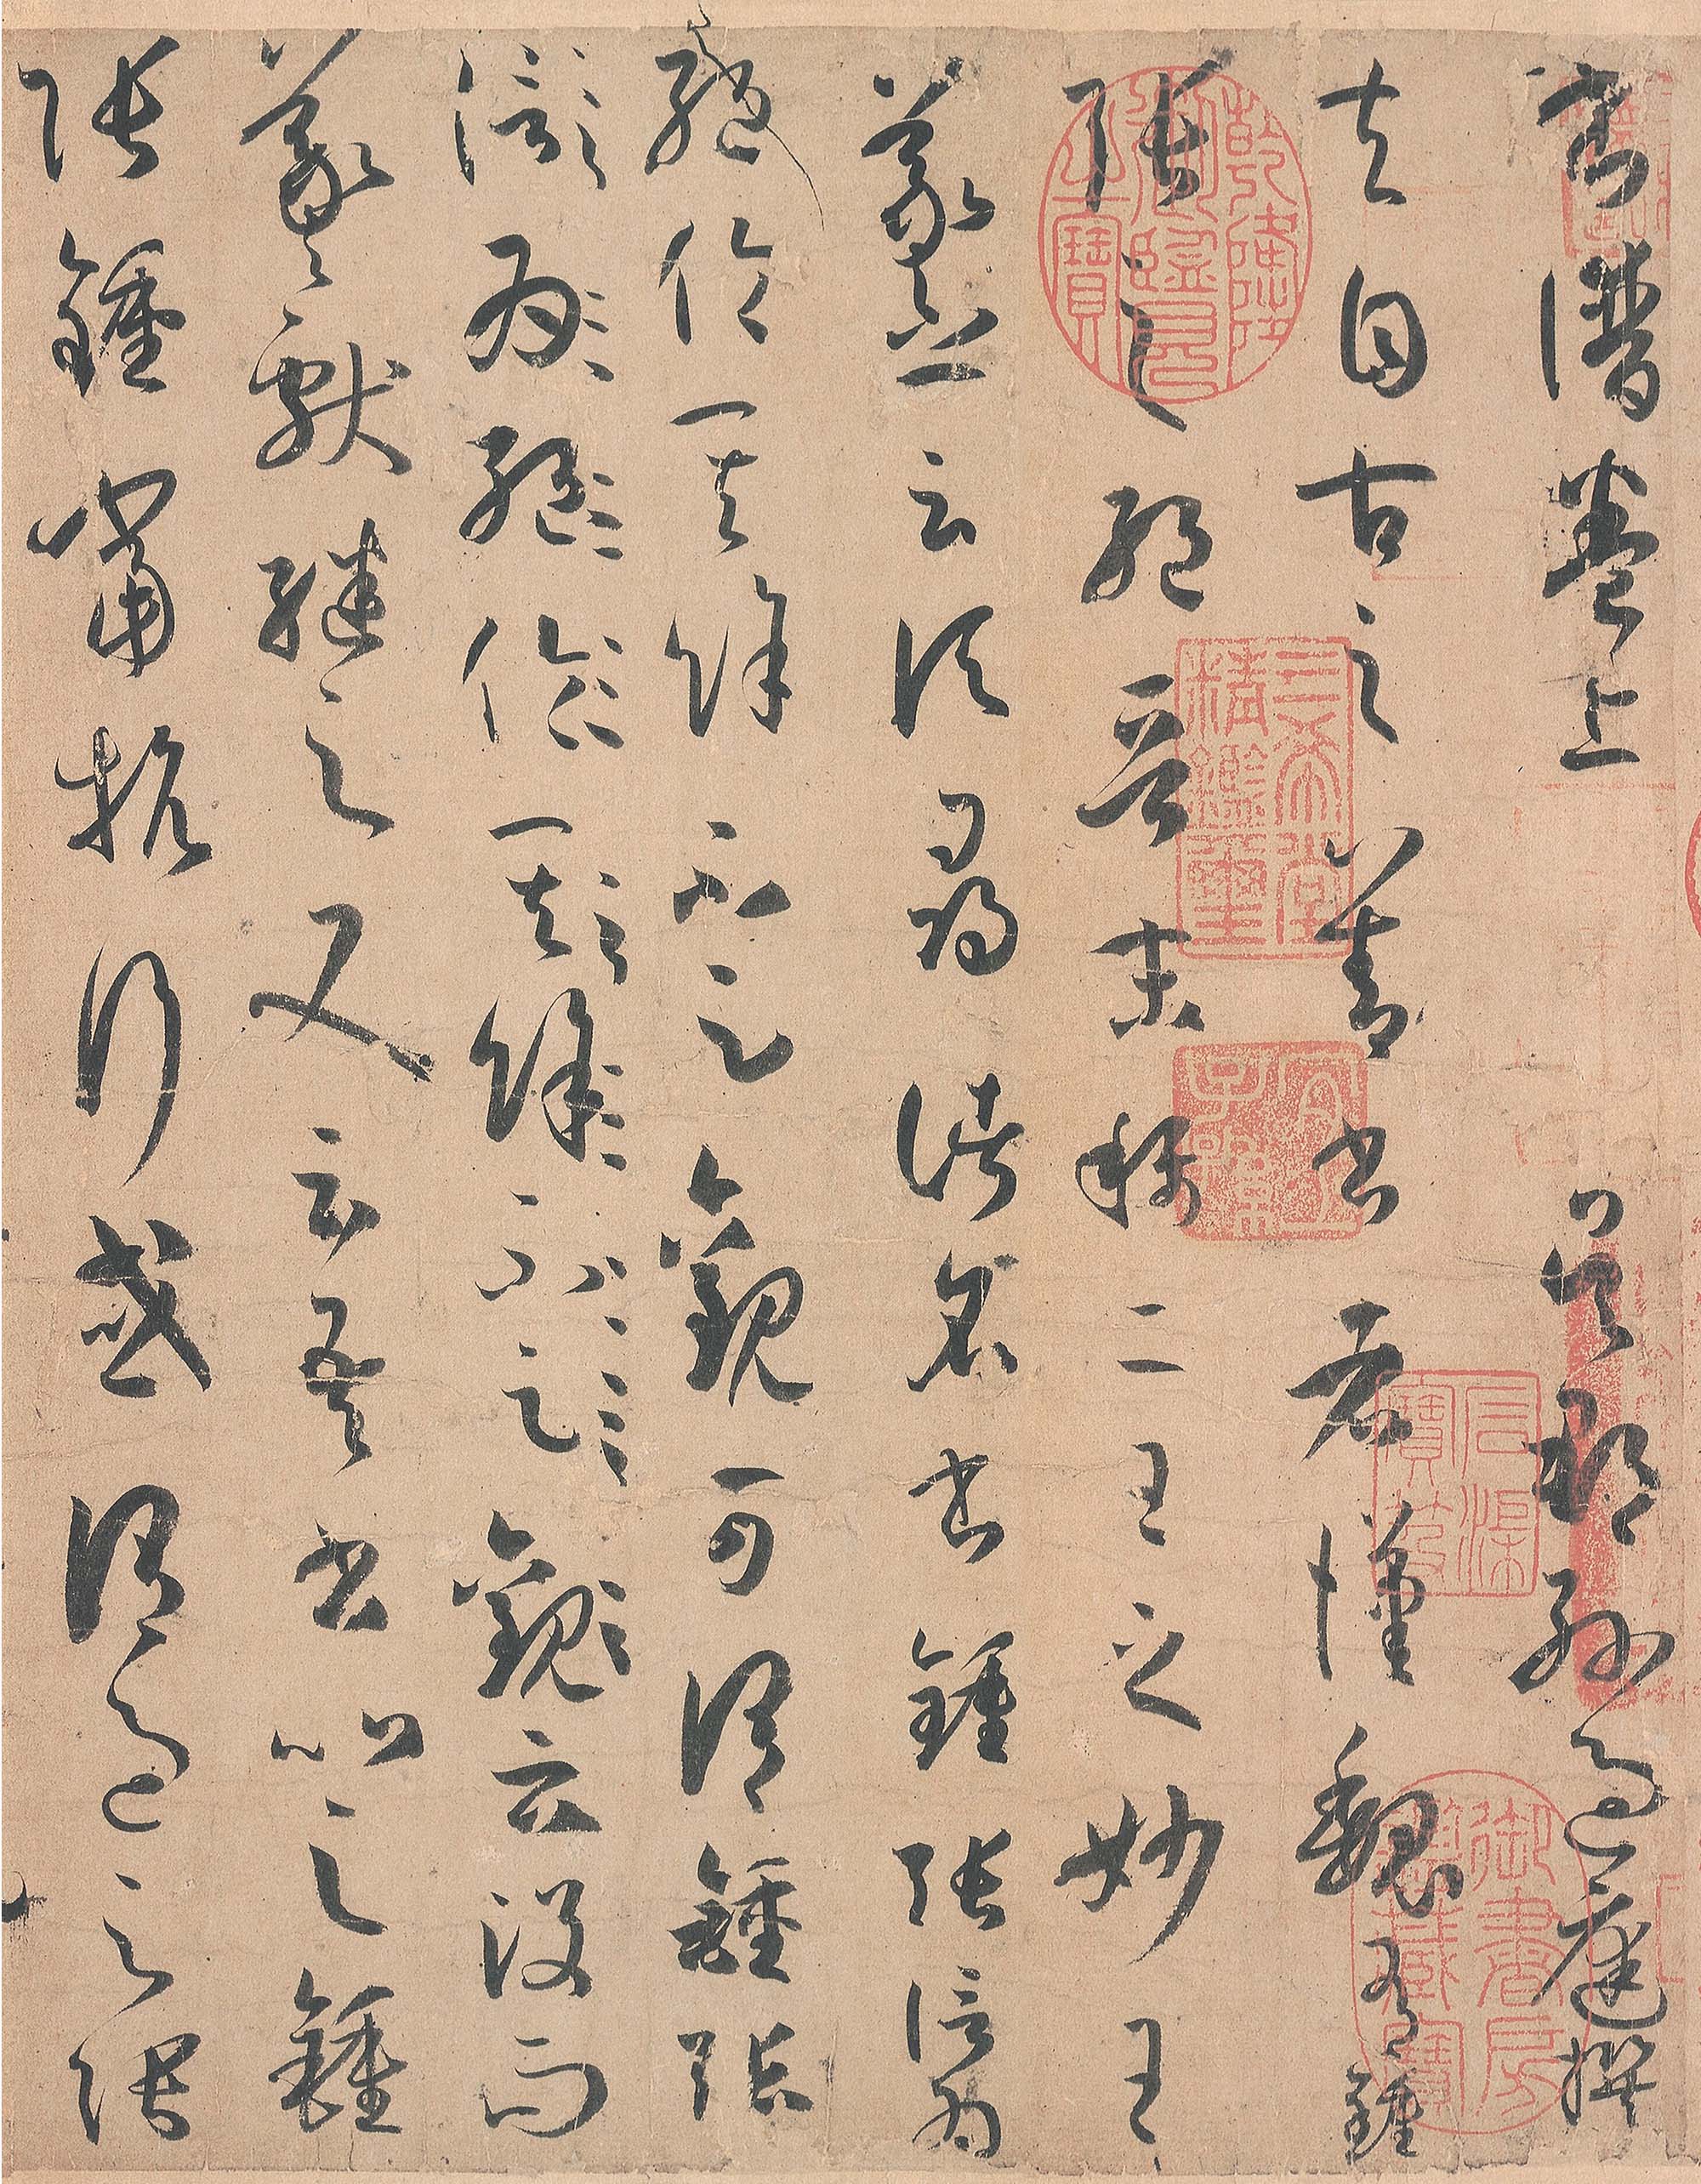 書譜卷上 吳郡孫過庭撰
夫自古之善書者漢魏有鍾
張之絕晉末稱二王之妙王
羲之云頃尋諸名書鍾張信為
絕倫其餘不足觀可謂鍾張
信為絕倫其餘不足觀云沒而
羲獻繼之又云吾書比之鍾
張鍾當抗行或謂過之張
乾隆御覽之寶
三希堂精鑑璽
宜子孫
石渠寶笈
御書房鑑藏寶